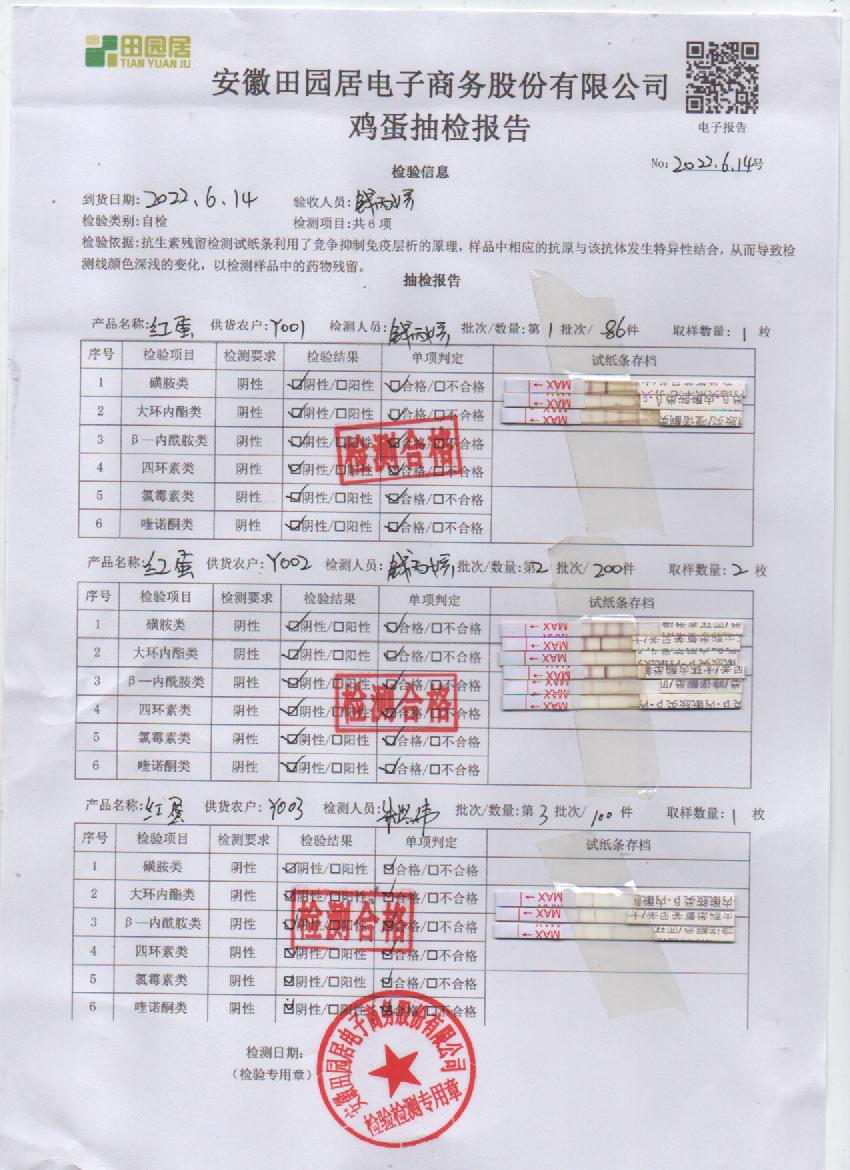 田园居
TIAN YUAN JU
安徽田园居电子商务股份有限公司
鸡蛋抽检报告
电子报告
检验信息
No: 2022.6.14号
到货日期: 2022.6.14 验收人员:
检验类别: 自检 检测项目: 共6项
检验依据: 抗生素残留检测试纸条利用了竞争抑制免疫层析的原理, 样品中相应的抗原与该抗体发生特异性结合, 从而导致检
测线颜色深浅的变化, 以检测样品中的药物残留。
抽检报告
产品名称: 红蛋 供货农户: Y001 检测人员: 批次/数量: 第1批次/86件 取样数量: 1枚
序号 检验项目 检测要求 检验结果 单项判定 试纸条存档
1 磺胺类 阴性 ☑阴性/□阳性 ☑合格/□不合格
2 大环内酯类 阴性 ☑阴性/□阳性 ☑合格/□不合格
3 β—内酰胺类 阴性 ☑阴性/□阳性 ☑合格/□不合格
4 四环素类 阴性 ☑阴性/□阳性 ☑合格/□不合格
5 氯霉素类 阴性 ☑阴性/□阳性 ☑合格/□不合格
6 喹诺酮类 阴性 ☑阴性/□阳性 ☑合格/□不合格
MAX
MAX
MAX
检测合格
产品名称: 红蛋 供货农户: Y002 检测人员: 批次/数量: 第2批次/200件 取样数量: 2枚
序号 检验项目 检测要求 检验结果 单项判定 试纸条存档
1 磺胺类 阴性 ☑阴性/□阳性 ☑合格/□不合格
2 大环内酯类 阴性 ☑阴性/□阳性 ☑合格/□不合格
3 β—内酰胺类 阴性 ☑阴性/□阳性 ☑合格/□不合格
4 四环素类 阴性 ☑阴性/□阳性 ☑合格/□不合格
5 氯霉素类 阴性 ☑阴性/□阳性 ☑合格/□不合格
6 喹诺酮类 阴性 ☑阴性/□阳性 ☑合格/□不合格
MAX
MAX
MAX
MAX
MAX
MAX
检测合格
产品名称: 红蛋 供货农户: Y003 检测人员: 批次/数量: 第3批次/100件 取样数量: 1枚
序号 检验项目 检测要求 检验结果 单项判定 试纸条存档
1 磺胺类 阴性 ☑阴性/□阳性 ☑合格/□不合格
2 大环内酯类 阴性 ☑阴性/□阳性 ☑合格/□不合格
3 β—内酰胺类 阴性 ☑阴性/□阳性 ☑合格/□不合格
4 四环素类 阴性 ☑阴性/□阳性 ☑合格/□不合格
5 氯霉素类 阴性 ☑阴性/□阳性 ☑合格/□不合格
6 喹诺酮类 阴性 ☑阴性/□阳性 ☑合格/□不合格
MAX
MAX
MAX
检测合格
检测日期:
(检验专用章)
安徽田园居电子商务股份有限公司
检验检测专用章